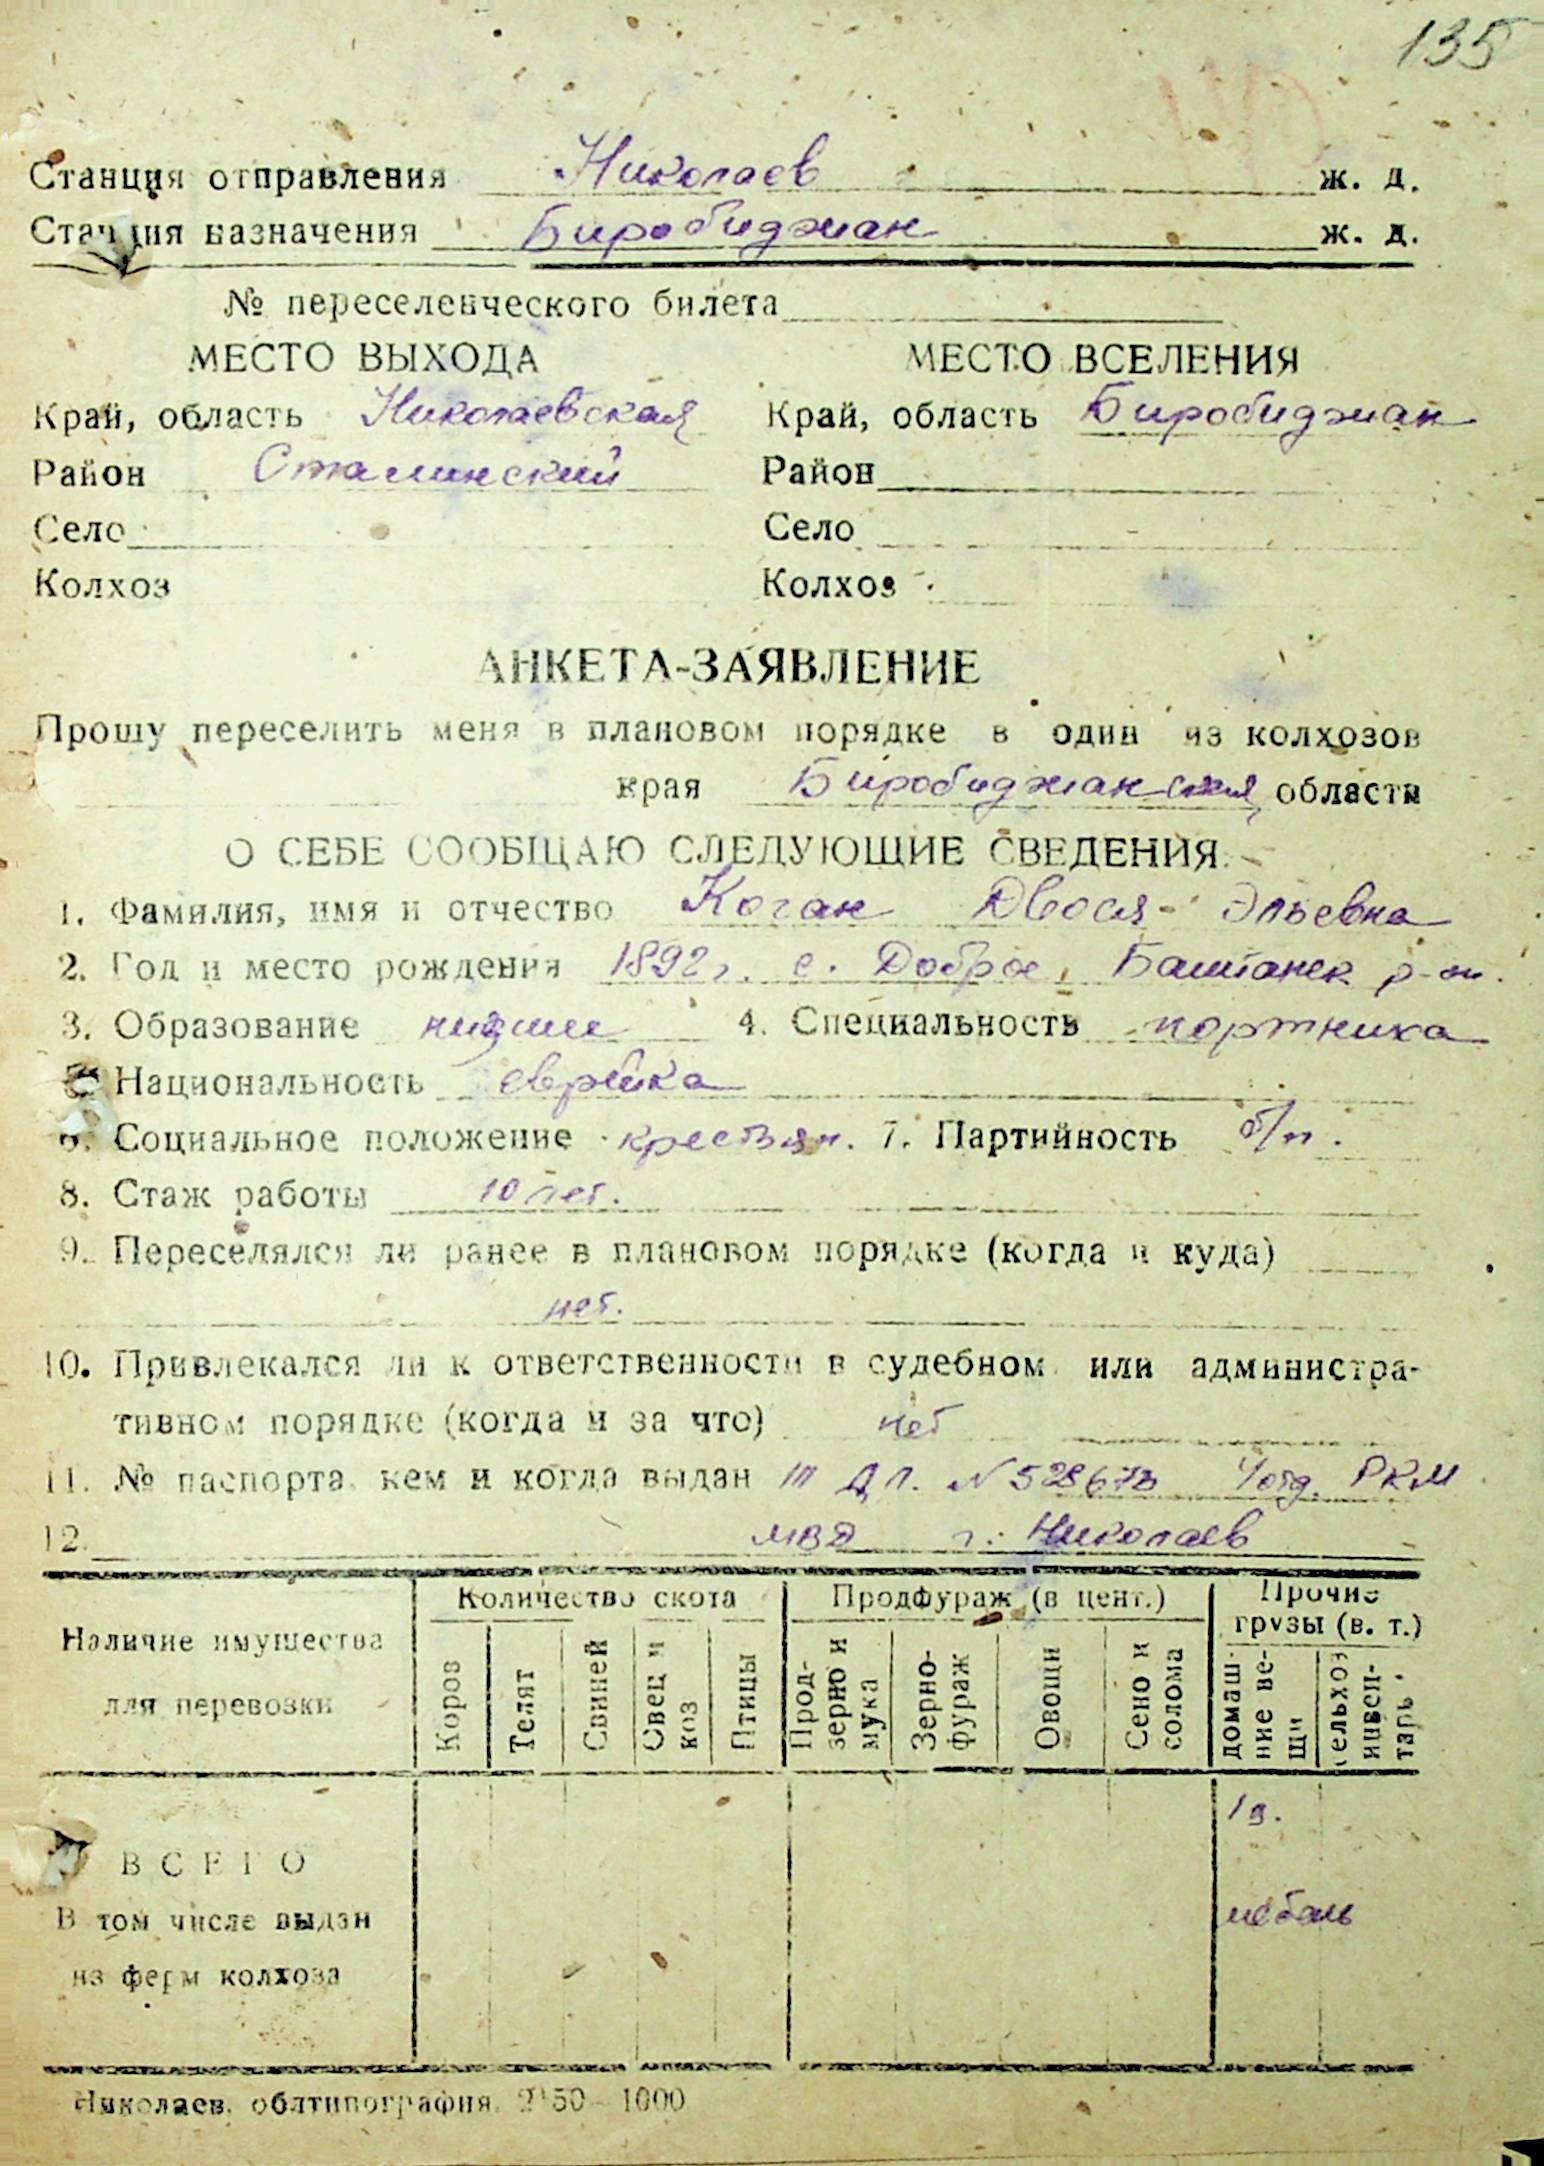 135
Станция отправления Николаев ж. д.
Станция назначения Биробиджан ж. д.
№ переселенческого билета
МЕСТО ВЫХОДА МЕСТО ВСЕЛЕНИЯ
Край, область Николаевская Край, область Биробиджан
Район Сталинский Район
Село Село
Колхоз Колхоз
АНКЕТА-ЗАЯВЛЕНИЕ
Прошу переселить меня в плановом порядке в один из колхозов
края Биробиджанская области
О СЕБЕ СООБЩАЮ СЛЕДУЮЩИЕ СВЕДЕНИЯ:
1. Фамилия, имя и отчество Коган Двося Эльевна
2. Год и место рождения 1892 г. с. Доброе, Баштанск р-он.
3. Образование низшее 4. Специальность портниха
5. Национальность еврейка
6. Социальное положение крестьян. 7. Партийность б/п.
8. Стаж работы 10 лет.
9. Переселялся ли ранее в плановом порядке (когда и куда)
нет.
10. Привлекался ли к ответственности в судебном или администра-
тивном порядке (когда и за что) нет
11. № паспорта, кем и когда выдан III N 528673 4 отд. РКМ
12. МВД г. Николаев
Наличие имущества для перевозки
Количество скота
Продфураж (в цент.)
Прочие грузы (в. т.)
Коров
Телят
Свиней
Овец и коз
Птицы
Прод-зерно и мука
Зерно-фураж
Овощи
Сено и солома
домаш-ние ве-щи
сельхоз инвен-тарь
1 т.
ВСЕГО
В том числе выдан мебель
из ферм колхоза
Николаев, облтипография, 2-50—1000